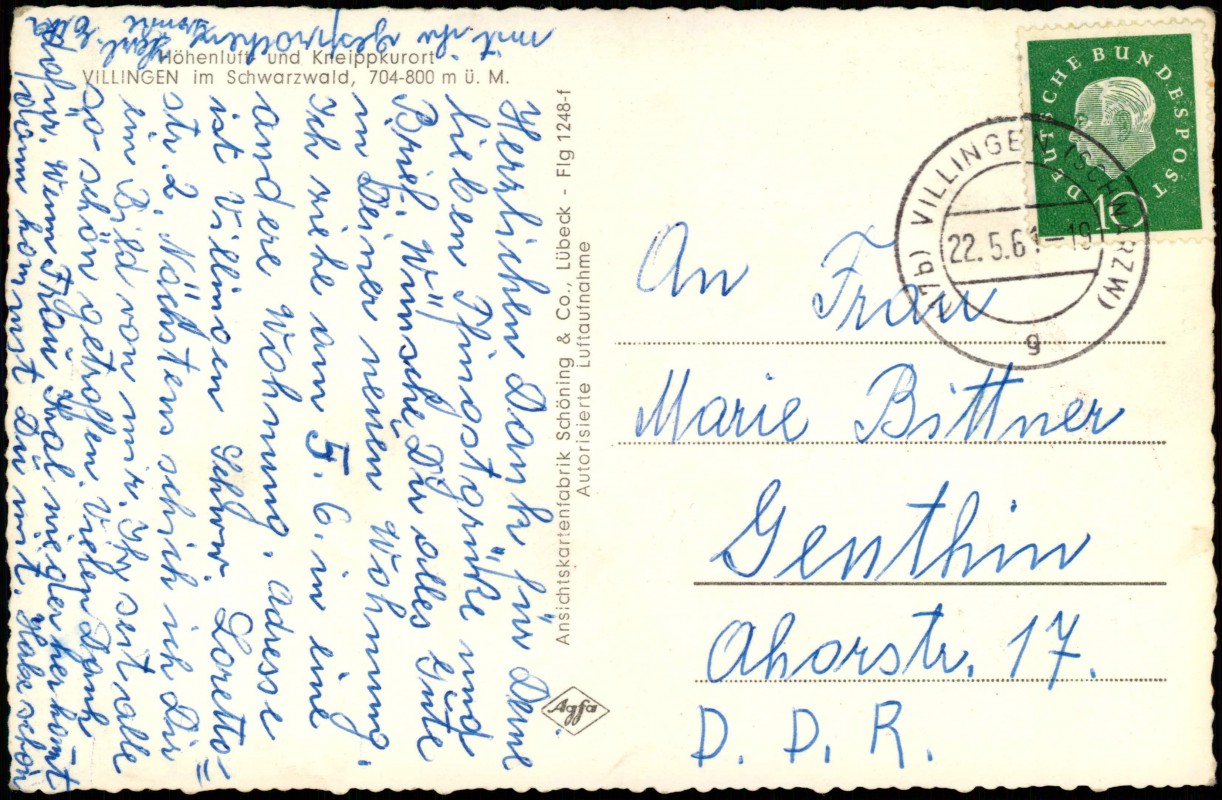 Höhenluft- und Kneippkurort
VILLINGEN im Schwarzwald, 704-800 m ü. M.
Herzlichen Dank für Deine
lieben Pfingstgrüße und
Brief. Wünsche Dir alles Gute
in Deiner neuen Wohnung.
Ich ziehe am 5. 6. in eine
andere Wohnung. Adresse
ist Villingen Schww. Loretto=
str. 2. Nächstens schick ich Dir
ein Bild von mir. Ihr seit alle
so schön getroffen. Vielen Dank
dafür. Wenn Frau mal wieder herkomt
dann kommst Du mit. Habe schon
mit ihr gesprochen.
Ansichtskartenfabrik Schöning & Co., Lübeck - Flg 1248-f
Autorisierte Luftaufnahme
Agfa
DEUTSCHE BUNDESPOST
10
(17b) VILLINGEN (SCHWARZW)
22.5.61-19
g
An Frau
Marie Bittner
Genthin
Ahorstr. 17.
D. D. R.